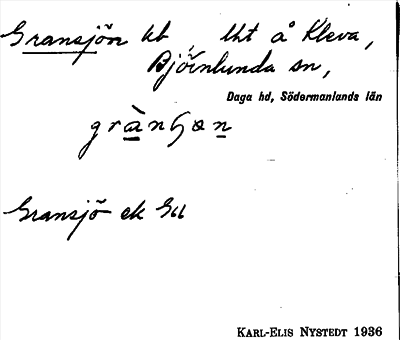 Gransjön lht å Kleva,
Björnlunda sn,
Daga hd, Södermanlands län
Gransjö ek
KARL-ELIS NYSTEDT 1936